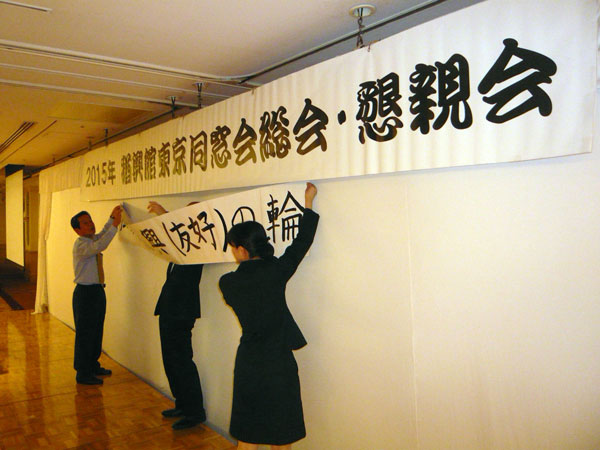 2015年 猶興館東京同窓会総会・懇親会
興(友好)の輪